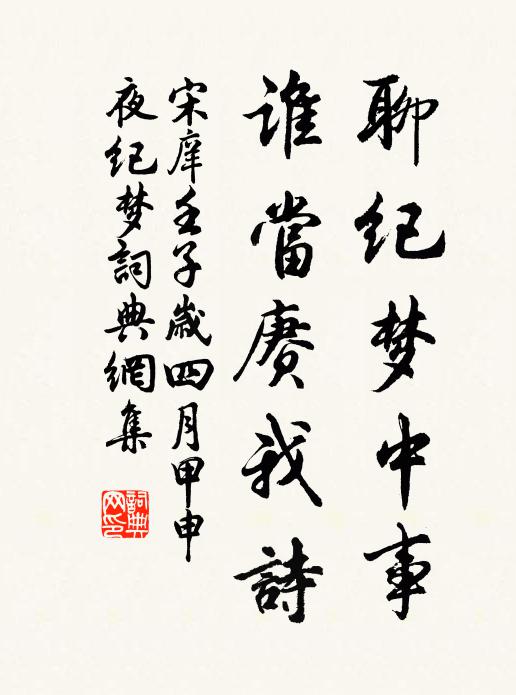 聊纪梦中事
誰當赓我詩
宋庠壬子歲四月甲申
夜纪梦詞典網集
詞典
网印